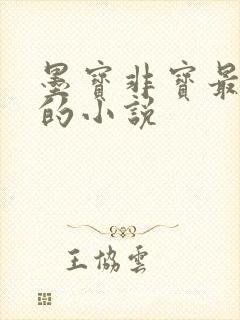 墨寶非寶最
的小説
王協雲